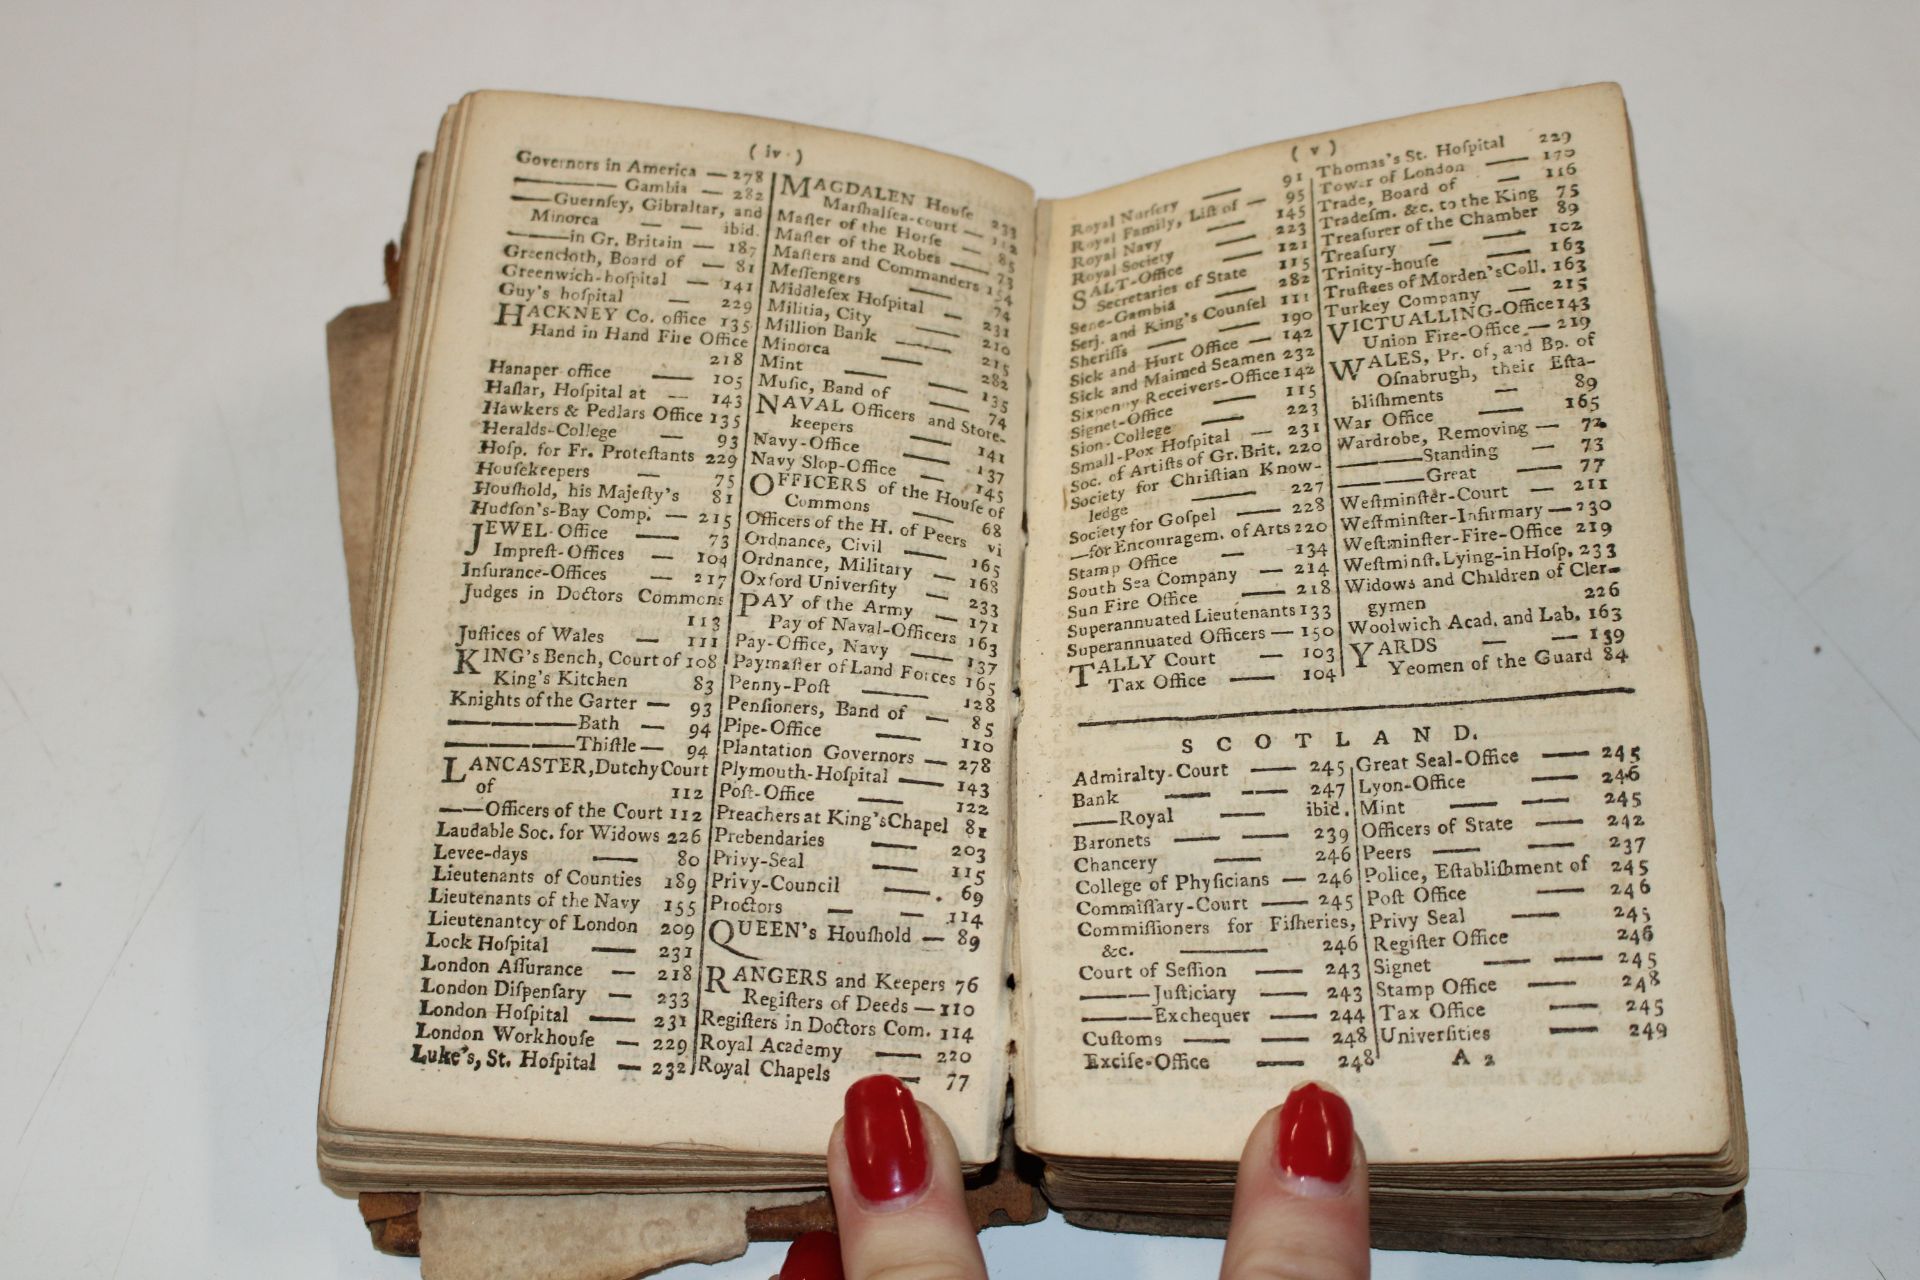 ( iv )
Governors in America — 278
——— Gambia — 282
——Guernſey, Gibraltar, and
Minorca — — ibid.
———in Gr. Britain — 187
Greencloth, Board of — 81
Greenwich-hoſpital — 141
Guy's hoſpital — 229
HACKNEY Co. office 135
Hand in Hand Fire Office
218
Hanaper office — 105
Haſlar, Hoſpital at — 143
Hawkers & Pedlars Office 135
Heralds-College — 93
Hoſp. for Fr. Proteſtants 229
Houſekeepers — 75
Houſhold, his Majeſty's 81
Hudſon's-Bay Comp. — 215
JEWEL-Office — 73
Impreſt-Offices — 104
Inſurance-Offices — 217
Judges in Doctors Commons
113
Juſtices of Wales — 111
KING's Bench, Court of 108
King's Kitchen 83
Knights of the Garter — 93
————Bath — 94
————Thiſtle — 94
LANCASTER, Dutchy Court
of 112
——Officers of the Court 112
Laudable Soc. for Widows 226
Levee-days — 80
Lieutenants of Counties 189
Lieutenants of the Navy 155
Lieutenantcy of London 209
Lock Hoſpital — 231
London Aſſurance — 218
London Diſpenſary — 233
London Hoſpital — 231
London Workhouſe — 229
Luke's, St. Hoſpital — 232
MAGDALEN Houſe 233
Marſhalſea-court — 112
Maſter of the Horſe — 85
Maſter of the Robes — 73
Maſters and Commanders 154
Meſſengers — 74
Middleſex Hoſpital — 231
Militia, City — 210
Million Bank — 215
Minorca — 282
Mint — — 135
Muſic, Band of — 74
NAVAL Officers and Store-
keepers — 141
Navy-Office — 137
Navy Slop-Office — 145
OFFICERS of the Houſe of
Commons — 68
Officers of the H. of Peers vi
Ordnance, Civil — 165
Ordnance, Military — 168
Oxford Univerſity — 233
PAY of the Army — 171
Pay of Naval-Officers 163
Pay-Office, Navy — 137
Paymaſter of Land Forces 165
Penny-Poſt — 128
Penſioners, Band of — 85
Pipe-Office — 110
Plantation Governors — 278
Plymouth-Hoſpital — 143
Poſt-Office — 122
Preachers at King's Chapel 81
Prebendaries — 203
Privy-Seal — 115
Privy-Council — 69
Proctors — — 114
QUEEN's Houſhold — 89
RANGERS and Keepers 76
Regiſters of Deeds — 110
Regiſters in Doctors Com. 114
Royal Academy — 220
Royal Chapels — 77
( v )
Royal Nurſery — 91
Royal Family, Liſt of — 95
Royal Navy — 145
Royal Society — 223
SALT-Office — 121
Secretaries of State 115
Sene-Gambia — 282
Serj. and King's Counſel 111
Sheriffs — — 190
Sick and Hurt Office — 142
Sick and Maimed Seamen 232
Sixpenny Receivers-Office 142
Signet-Office — 115
Sion-College — 223
Small-Pox Hoſpital — 231
Soc. of Artiſts of Gr. Brit. 220
Society for Chriſtian Know-
ledge — 227
Society for Goſpel — 228
—for Encouragem. of Arts 220
Stamp Office — 134
South Sea Company — 214
Sun Fire Office — 218
Superannuated Lieutenants 133
Superannuated Officers — 150
TALLY Court — 103
Tax Office — 104
Thomas's St. Hoſpital 229
Tower of London — 170
Trade, Board of — 116
Tradeſm. &c. to the King 75
Treaſurer of the Chamber 89
Treaſury — — 102
Trinity-houſe — 163
Truſtees of Morden's Coll. 163
Turkey Company — 215
VICTUALLING-Office 143
Union Fire-Office — 219
WALES, Pr. of, and Bp. of
Oſnabrugh, their Eſta-
bliſhments — 89
War Office — 165
Wardrobe, Removing — 72
———Standing — 73
———Great — 77
Weſtminſter-Court — 211
Weſtminſter-Infirmary — 230
Weſtminſter-Fire-Office 219
Weſtminſt. Lying-in Hoſp. 233
Widows and Children of Cler-
gymen 226
Woolwich Acad. and Lab. 163
YARDS — — 139
Yeomen of the Guard 84
SCOTLAND.
Admiralty-Court — 245
Bank — — 247
——Royal — ibid.
Baronets — — 239
Chancery — 246
College of Phyſicians — 246
Commiſſary-Court — 245
Commiſſioners for Fiſheries,
&c. — 246
Court of Seſſion — 243
———Juſticiary — 243
———Exchequer — 244
Cuſtoms — — 248
Exciſe-Office — 248
Great Seal-Office — 245
Lyon-Office — 246
Mint — — 245
Officers of State — 242
Peers — — 237
Police, Eſtabliſhment of 245
Poſt Office — 246
Privy Seal — 245
Regiſter Office 246
Signet — — 245
Stamp Office — 248
Tax Office — 245
Univerſities — 249
A 2